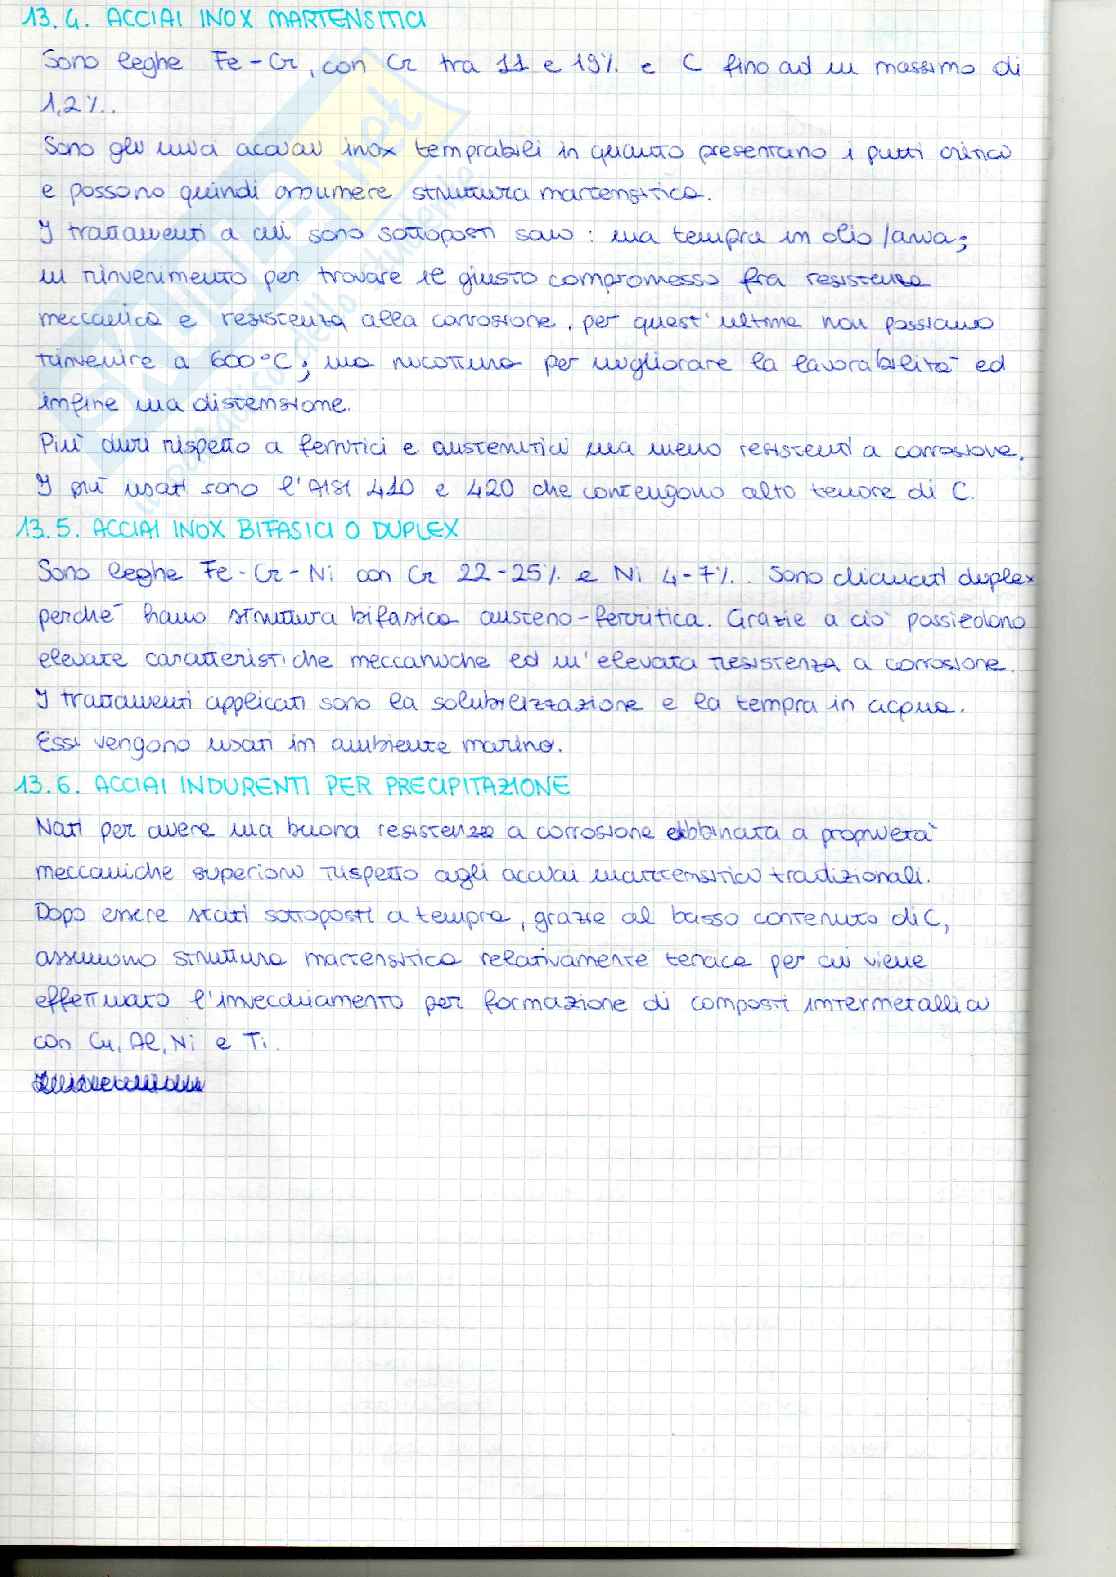 13.4. ACCIAI INOX MARTENSITICI
Sono leghe Fe-Cr, con Cr tra 11 e 19% e C fino ad un massimo di
1,2%.
Sono gli unici acciai inox temprabili in quanto presentano i punti critici
e possono quindi assumere struttura martensitica.
I trattamenti a cui sono sottoposti sono: una tempra in olio/aria;
un rinvenimento per trovare il giusto compromesso fra resistenza
meccanica e resistenza alla corrosione, per quest'ultima non possiamo
rinvenire a 600°C; una ricottura per migliorare la lavorabilità ed
infine una distensione.
Più duri rispetto a ferritici e austenitici ma meno resistenti a corrosione.
I più usati sono l'AISI 410 e 420 che contengono alto tenore di C.
13.5. ACCIAI INOX BIFASICI O DUPLEX
Sono leghe Fe-Cr-Ni con Cr 22-25% e Ni 4-7%. Sono chiamati duplex
perché hanno struttura bifasica austeno-ferritica. Grazie a ciò possiedono
elevate caratteristiche meccaniche ed un'elevata resistenza a corrosione.
I trattamenti applicati sono la solubilizzazione e la tempra in acqua.
Essi vengono usati in ambiente marino.
13.6. ACCIAI INDURENTI PER PRECIPITAZIONE
Nati per avere una buona resistenza a corrosione abbinata a proprietà
meccaniche superiori rispetto agli acciai martensitici tradizionali.
Dopo essere stati sottoposti a tempra, grazie al basso contenuto di C,
assumono struttura martensitica relativamente tenace per cui viene
effettuato l'invecchiamento per formazione di composti intermetallici
con Cu, Al, Ni e Ti.
SKUOLA.net